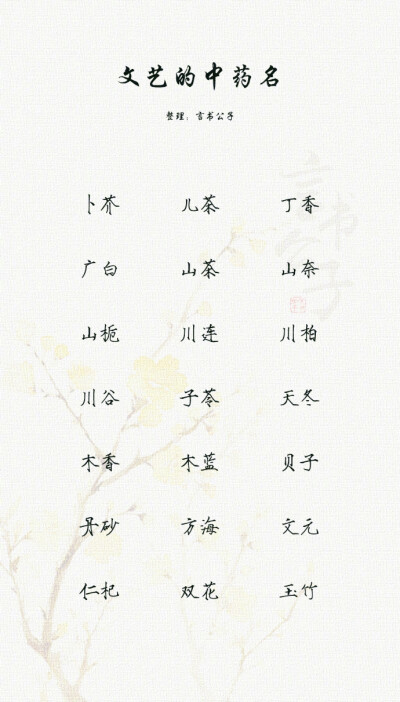 文艺的中药名
整理：言书公子
言书公子
卜芥 儿茶 丁香
广白 山茶 山奈
山栀 川连 川柏
川谷 子苓 天冬
木香 木蓝 贝子
丹砂 方海 文元
仁杞 双花 玉竹